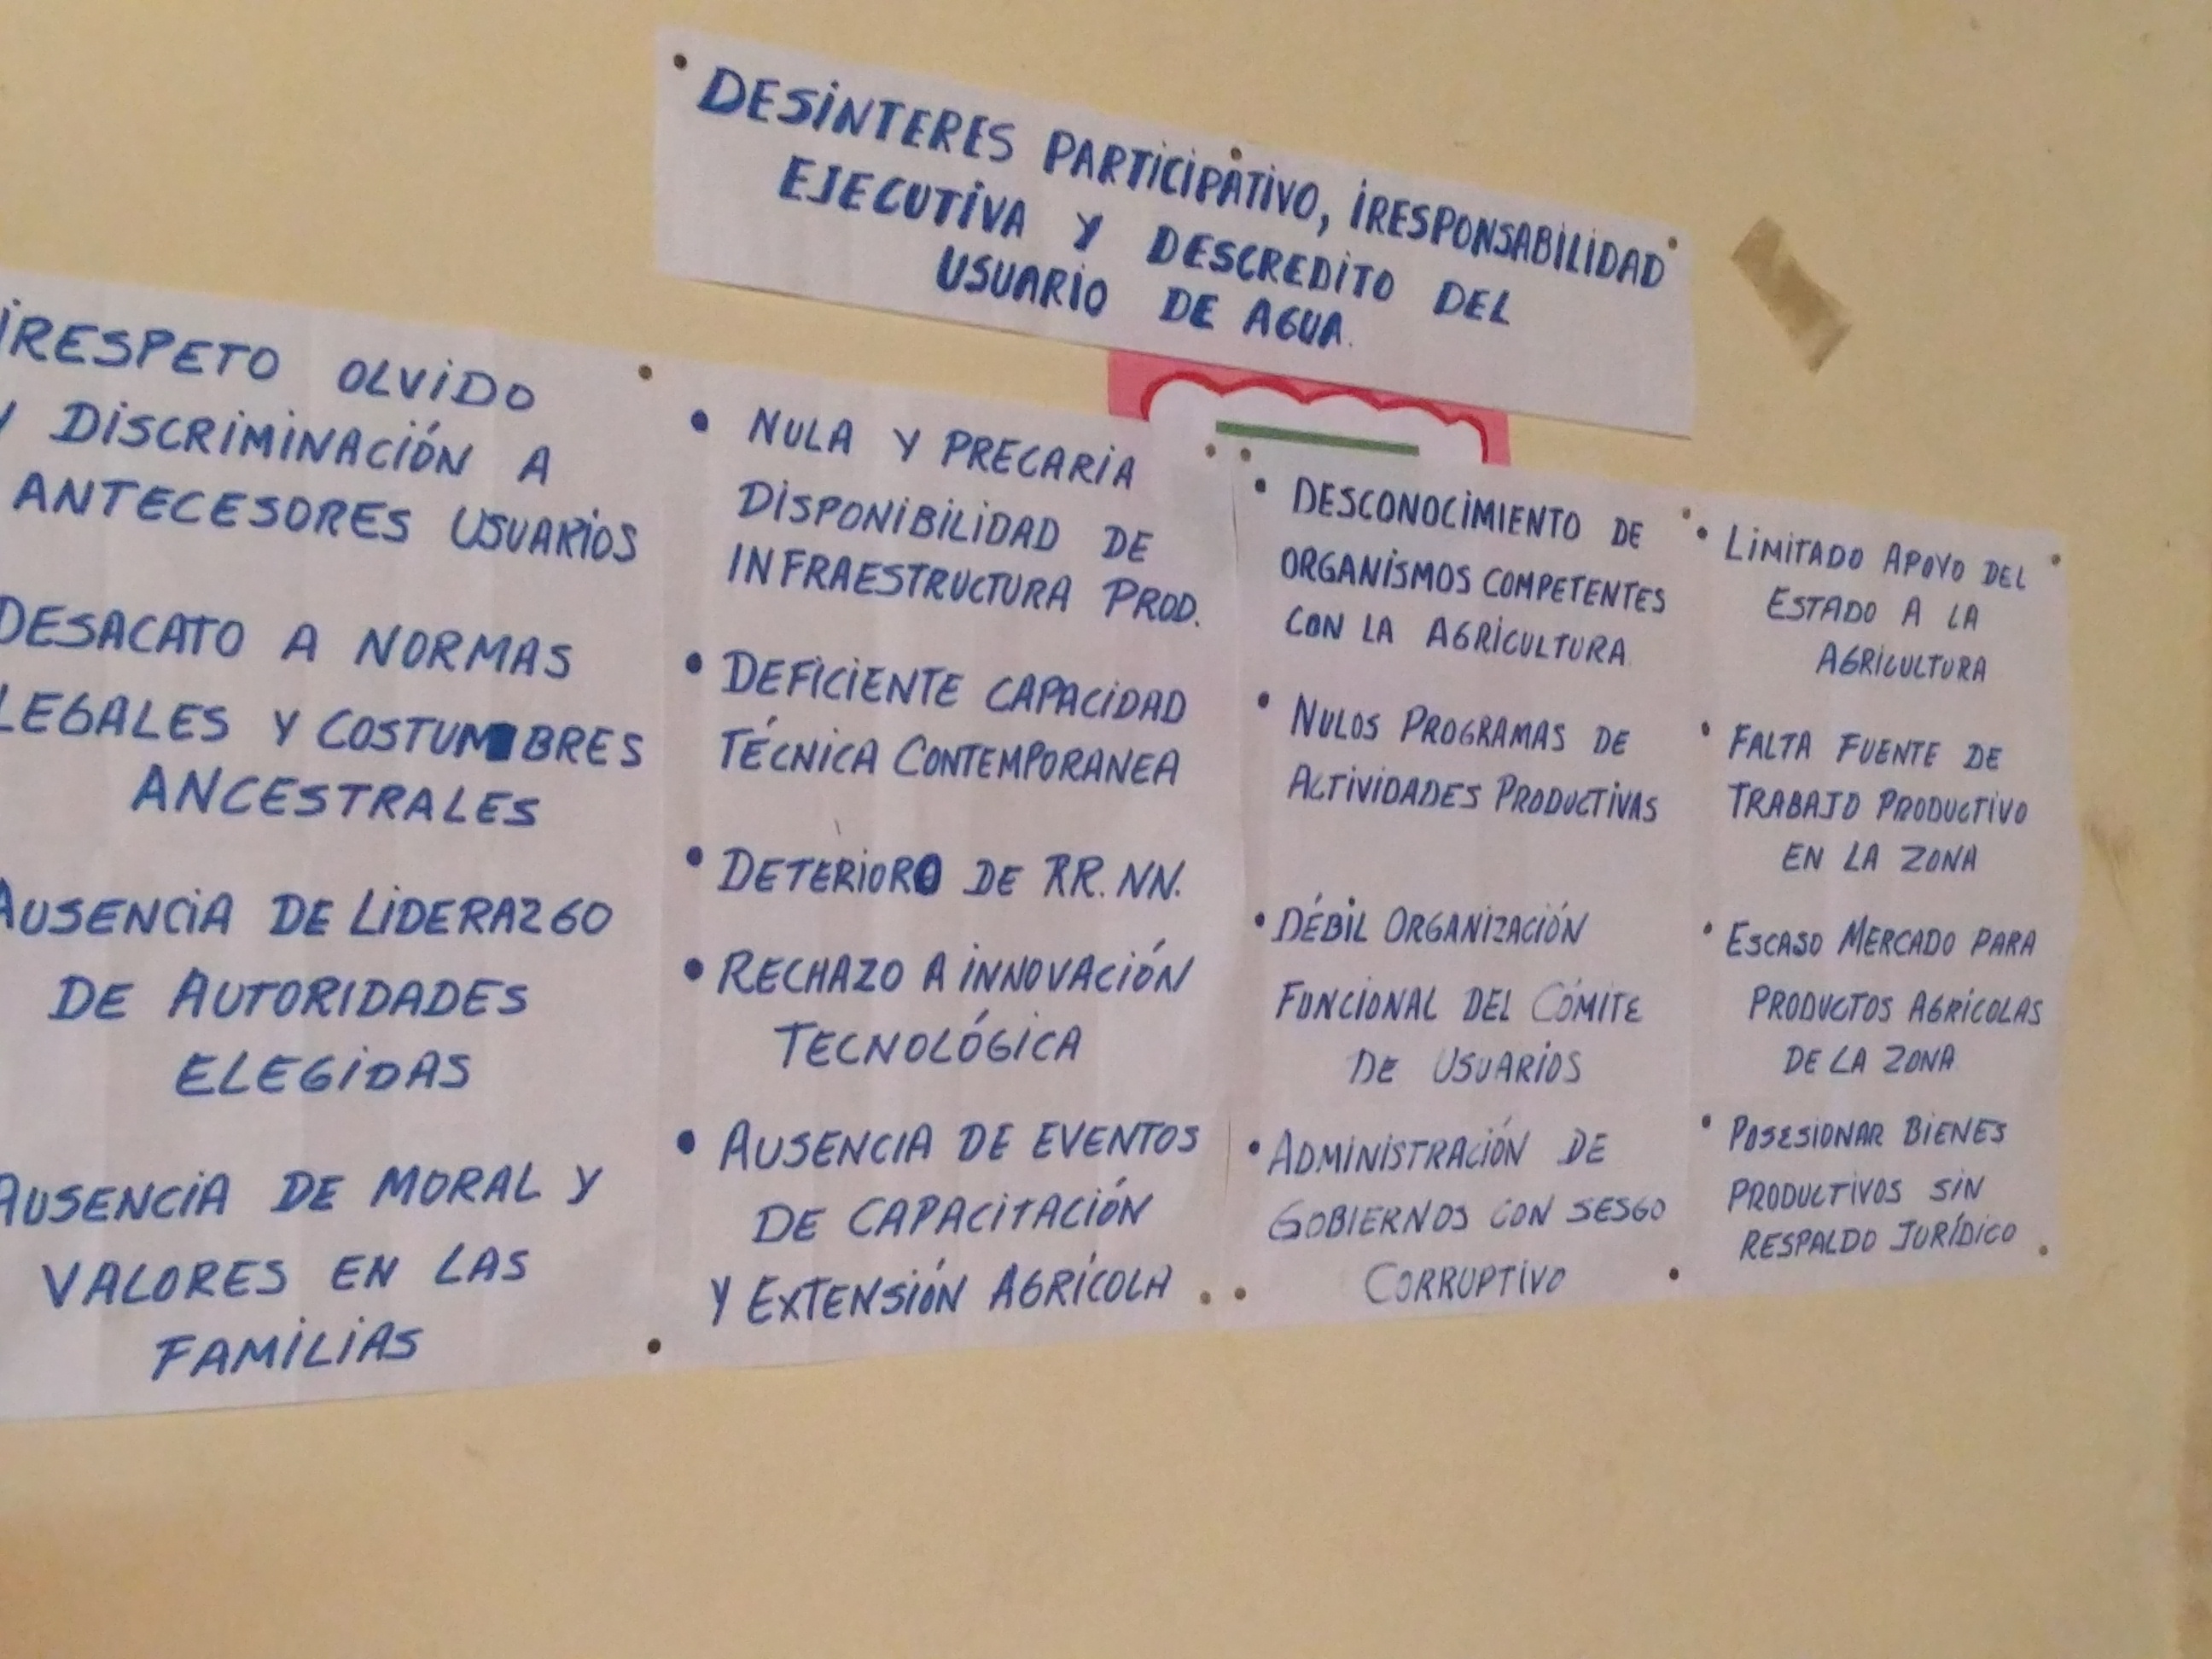 DESINTERES PARTICIPATIVO, IRESPONSABILIDAD
EJECUTIVA Y DESCREDITO DEL
USUARIO DE AGUA.
IRESPETO OLVIDO
Y DISCRIMINACIÓN A
ANTECESORES USUARIOS
DESACATO A NORMAS
LEGALES Y COSTUMBRES
ANCESTRALES
AUSENCIA DE LIDERAZGO
DE AUTORIDADES
ELEGIDAS
AUSENCIA DE MORAL Y
VALORES EN LAS
FAMILIAS
• NULA Y PRECARIA
DISPONIBILIDAD DE
INFRAESTRUCTURA PROD.
• DEFICIENTE CAPACIDAD
TÉCNICA CONTEMPORANEA
• DETERIORO DE RR. NN.
• RECHAZO A INNOVACIÓN
TECNOLÓGICA
• AUSENCIA DE EVENTOS
DE CAPACITACIÓN
Y EXTENSIÓN AGRÍCOLA
• DESCONOCIMIENTO DE
ORGANISMOS COMPETENTES
CON LA AGRICULTURA
• NULOS PROGRAMAS DE
ACTIVIDADES PRODUCTIVAS
• DÉBIL ORGANIZACIÓN
FUNCIONAL DEL CÓMITE
DE USUARIOS
• ADMINISTRACIÓN DE
GOBIERNOS CON SESGO
CORRUPTIVO
• LIMITADO APOYO DEL
ESTADO A LA
AGRICULTURA
• FALTA FUENTE DE
TRABAJO PRODUCTIVO
EN LA ZONA
• ESCASO MERCADO PARA
PRODUCTOS AGRÍCOLAS
DE LA ZONA
• POSESIONAR BIENES
PRODUCTIVOS SIN
RESPALDO JURÍDICO